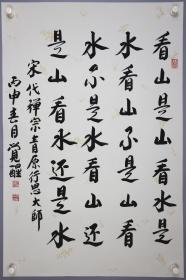 看山是山看水是
水看山不是山看
水不是水看山还
是山看水还是水
宋代禪宗青原行思大师
丙申春月觉醒